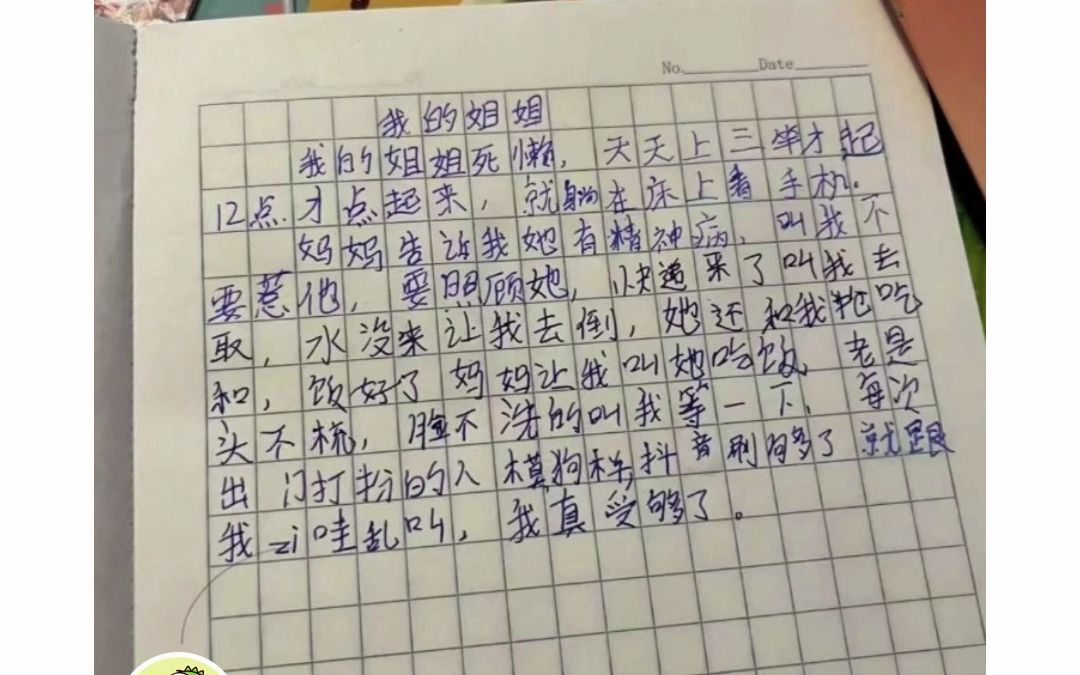 No. Date
我的姐姐
我的姐姐死懒，天天上三竿才起
12点才点起来，就躺在床上看手机.
妈妈告诉我她有精神病，叫我不
要惹他，要照顾她，快递来了叫我去
取，水没来让我去倒，她还和我抢吃
和，饭好了妈妈让我叫她吃饭，老是
头不梳，脸不洗的叫我等一下，每次
出门打扮的人模狗样，抖音刷够了就跟
我zi哇乱叫，我真受够了。